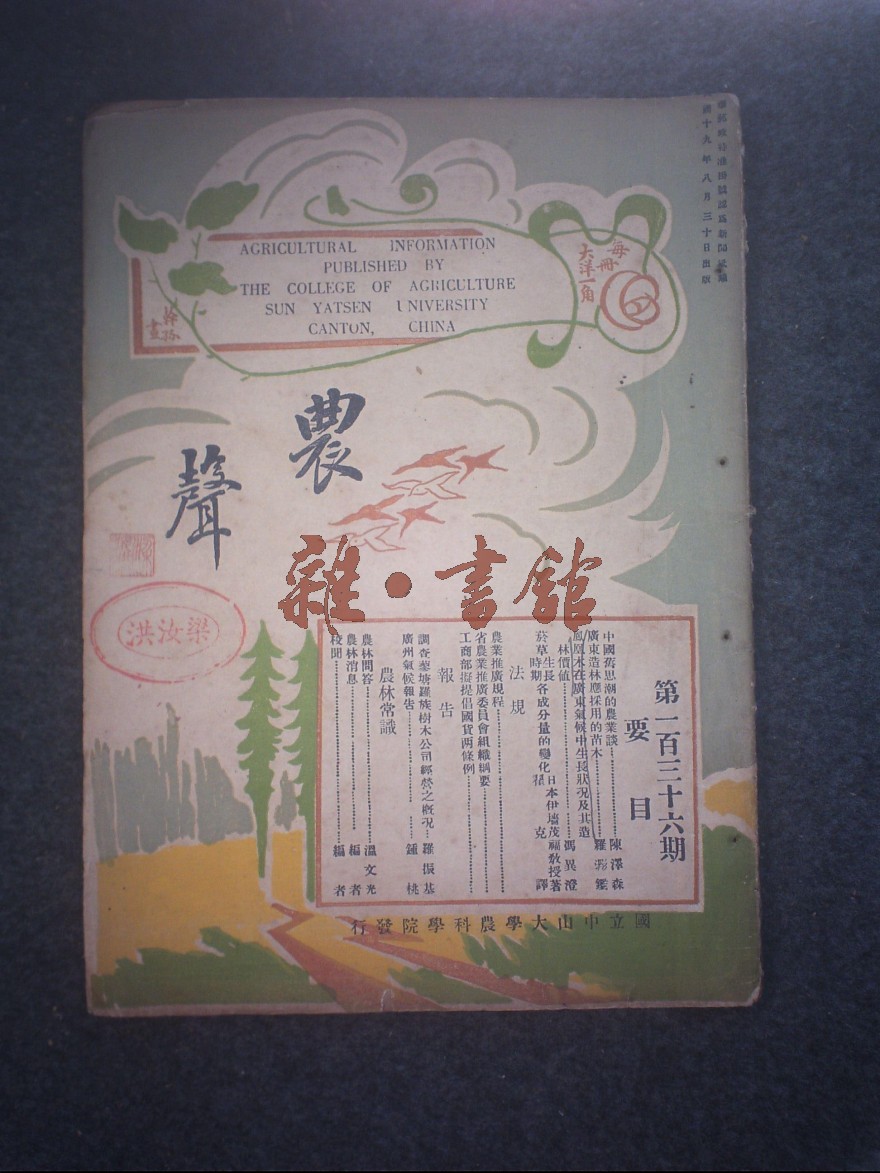 國十九年八月三十日出版
AGRICULTURAL INFORMATION
PUBLISHED BY
THE COLLEGE OF AGRICULTURE
SUN YATSEN UNIVERSITY
CANTON, CHINA
每冊
大洋一角
農
聲
雜·書館
洪汝梁
第一百三十六期
要目
中國舊思潮的農業談 陳澤森
廣東造林應採用的苗木 羅彤鑑
鳳凰木在廣東氣候中生長狀况及其造
林價値 馮異澄
菸草生長
時期各成分量的變化 日本伊墻茂福敎授著
克譯
法規
農業推廣規程
省農業推廣委員會組織綱要
工商部擬提倡國貨两條例
報告
調查蓼塘羅族樹木公司經營之槪况 羅振基
廣州氣候報告 鍾桃
農林常識
農林問答 溫文光
農林消息 編者
校聞 編者
行發院學科農學大山中立國